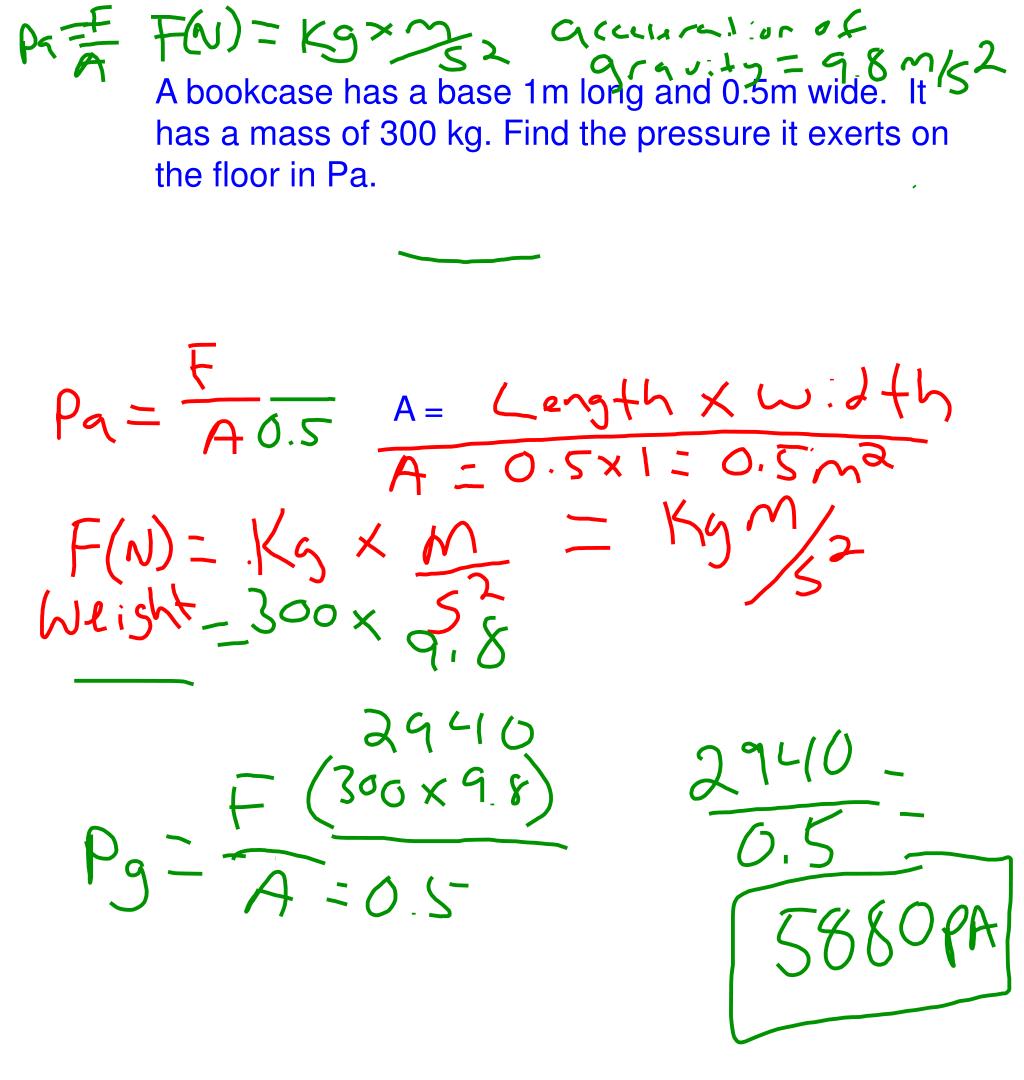 Pa = F/A F(N) = Kg × m/s2 acceleration of
gravity = 9.8 m/s2
A bookcase has a base 1m long and 0.5m wide. It
has a mass of 300 kg. Find the pressure it exerts on
the floor in Pa.
Pa = F/A 0.5 A = Length × Width
A = 0.5 × 1 = 0.5m2
F(N) = Kg × m/s2 = Kg m/s2
Weight = 300 × 9.8
2940
Pg = F/A (300 × 9.8) = 0.5
2940/0.5 =
5880 PA